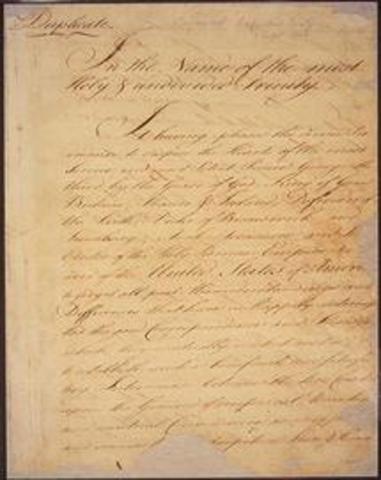 Duplicate.
In the Name of the most
Holy & undivided Trinity.
It having pleased the divine Pro
to dispose the Hearts of the most
Serene and most Potent Prince George the
third, by the Grace of God, King of Great
Britain, France & Ireland, Defender of
the Faith, Duke of Brunswick and
Treasurer and
Elector of the Holy Roman Empire
of the United States of America
to forget all past Misunderstandings and
Differences that have unhappily interrup
ted the good Correspondence and Friendship
which they mutually wish to
to establish such a beneficial and satisfac
tory Intercourse between the two Coun
upon the Ground of reciprocal Advantages
and mutual Convenience as may
and secure perpetual Peace &